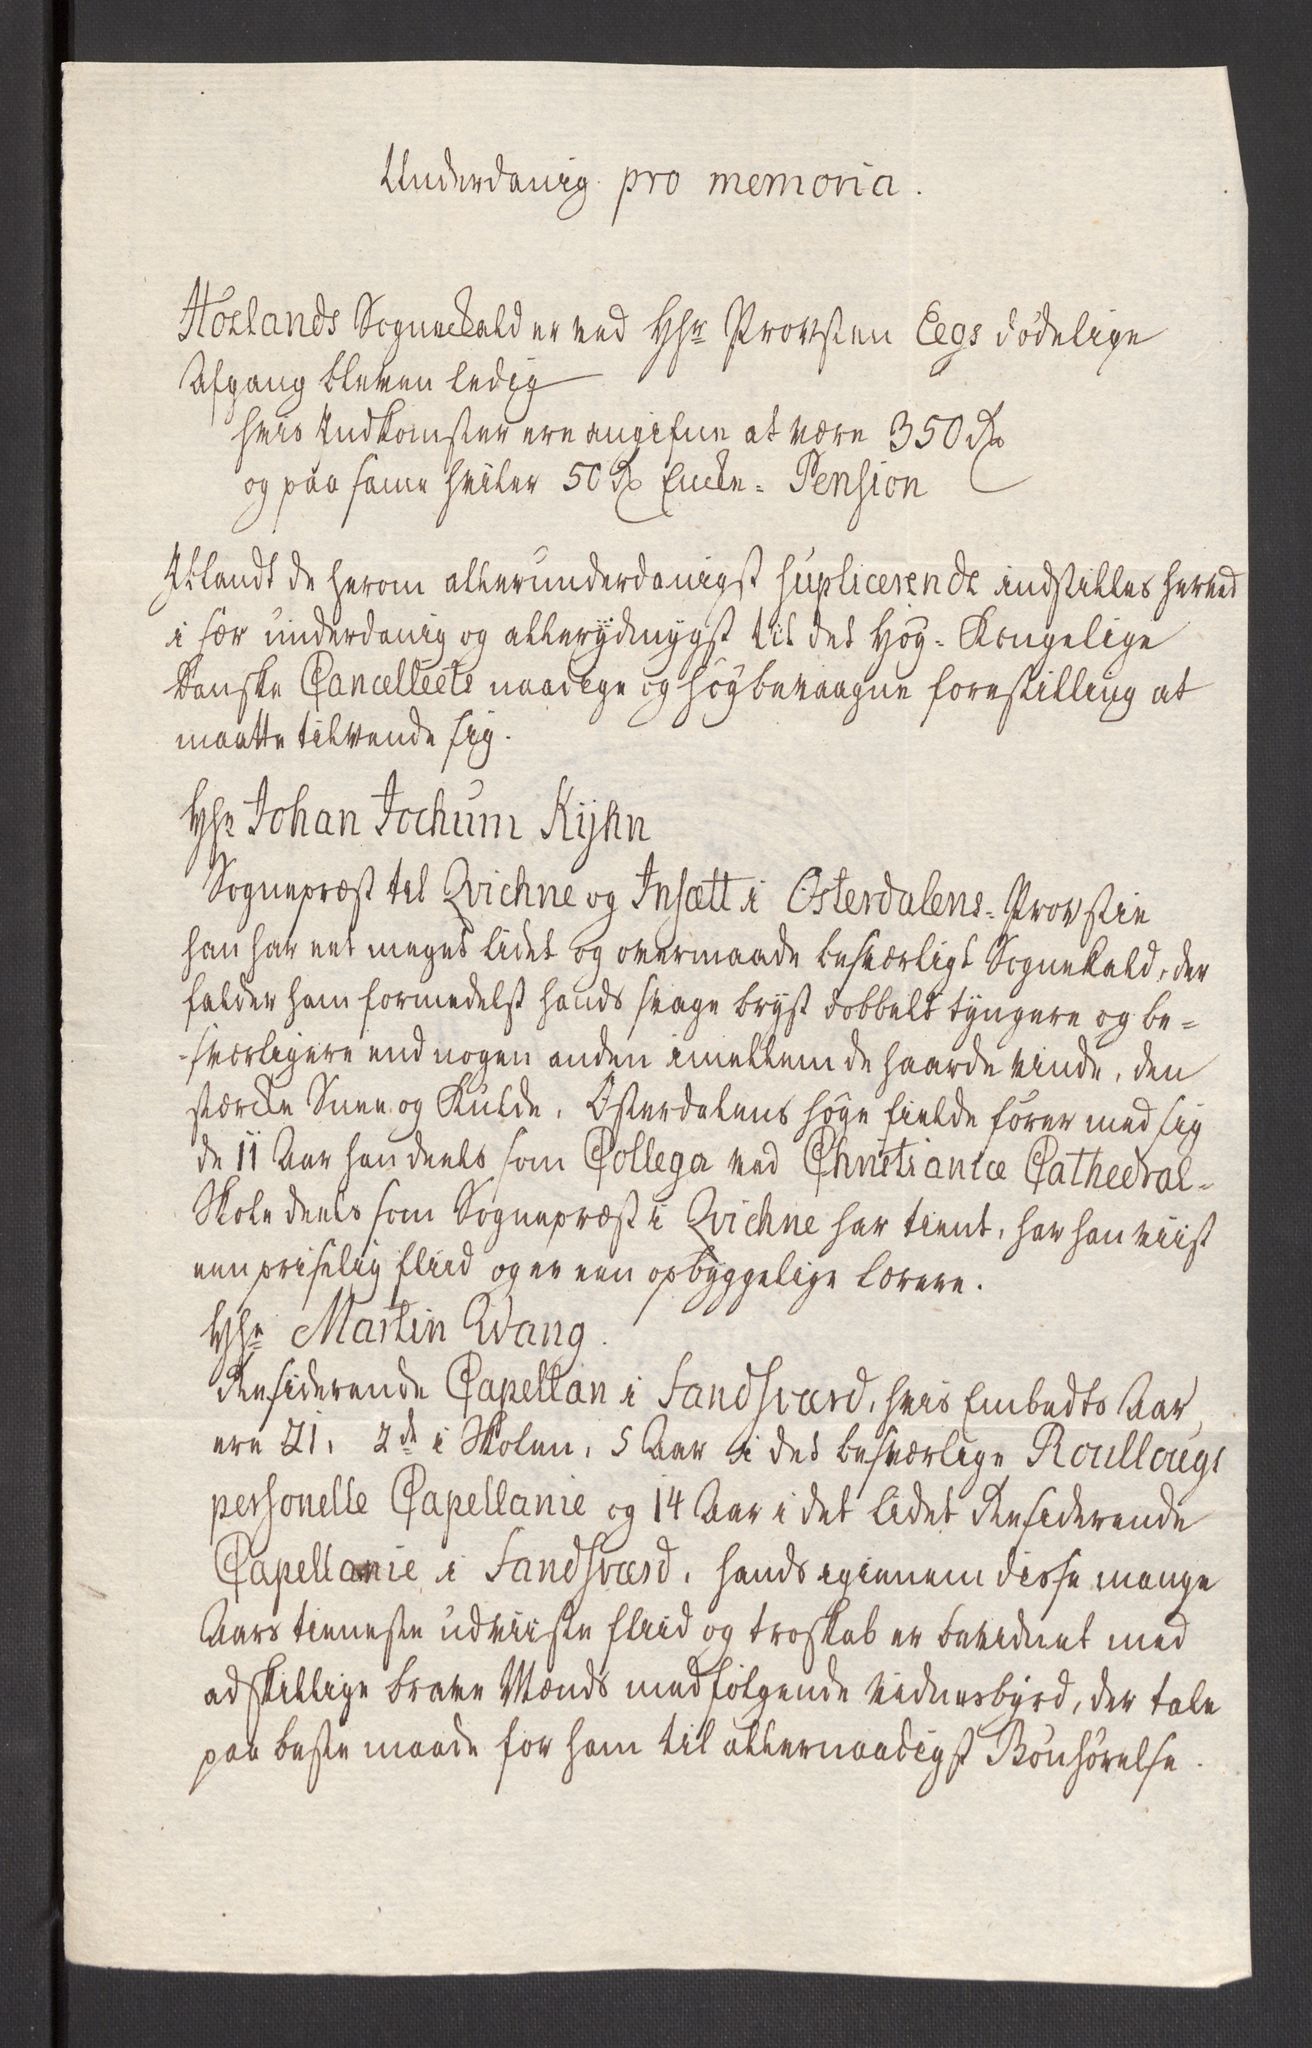 Underdanig pro memoria.
Hölands Sognekald er ved Hhr Provsten Eegs dödelige
Afgang bleven ledig
hvis Indkomster ere angifne at være 350 Rd
og paa same hviler 50 Rd Encke- Pension
Iblandt de herom allerunderdanigst suplicerende indstilles herved
i sær underdanig og allerydmygst til det Höy- Kongelige
danske Cancellies naadige og höybevaagne forestilling at
maatte tilvende sig.
Hhr Johan Jochum Kÿhn
Sognepræst til Qvichne og Insætt i Österdalens- Provstie
han har eet meget lidet og overmaade besværligt Sognekald, der
falder ham formedelst hands svage bryst dobbelt tyngere og be-
-sværligere end nogen anden imellem de haarde vinde, den
stærcke Snee og Kulde, Österdalens höye fielde förer med sig
de 11 Aar han deels som Collega ved Christianiæ Cathedral-
Skole deels som Sognepræst i Qvichne har tient, har han viist
een priselig fliid og er een opbyggelige lærere.
Hhr Martin Wang.
Residerende Capellan i Sandsværd, hvis Embedts Aar
ere 21, 2de i Skolen, 5 Aar i det besværlige Roullougs
personelle Capellanie og 14 Aar i det lidet Residerende
Capellanie i Sandsværd, hands igiennem disse mange
Aars tieneste udviiste fliid og troskab er bevidnet med
adskillige brave Mænds medfölgende vidnesbyrd, der tale
paa beste maade for ham til allernaadigst Bönhörelse.